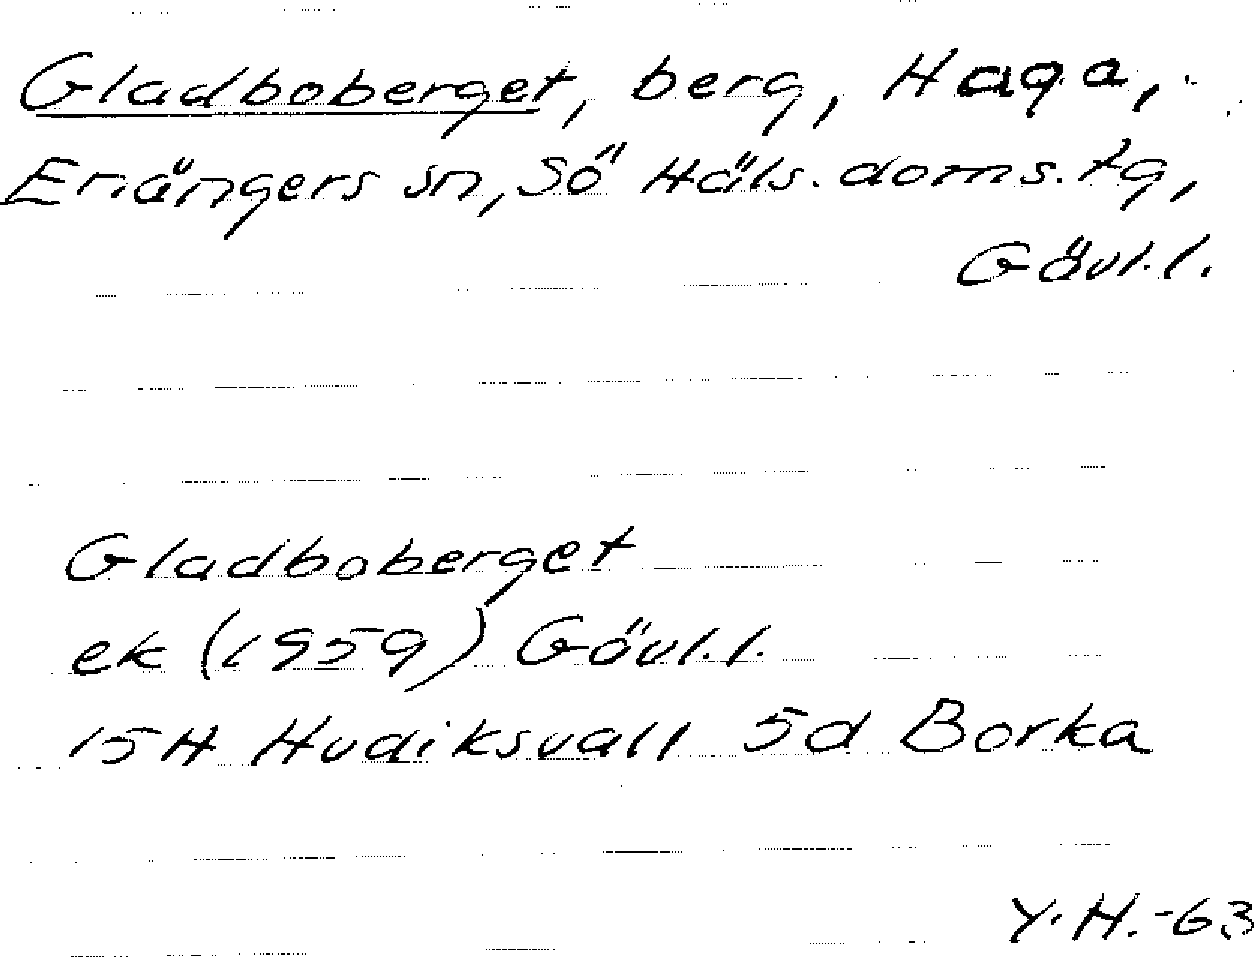 Gladboberget, berg, Haga,
Enångers sn, Sö Häls. doms. tg,
Gävl. l.
Gladboberget
ek (1959) Gävl. l.
15H Hudiksvall 5d Borka
Y. H. -63